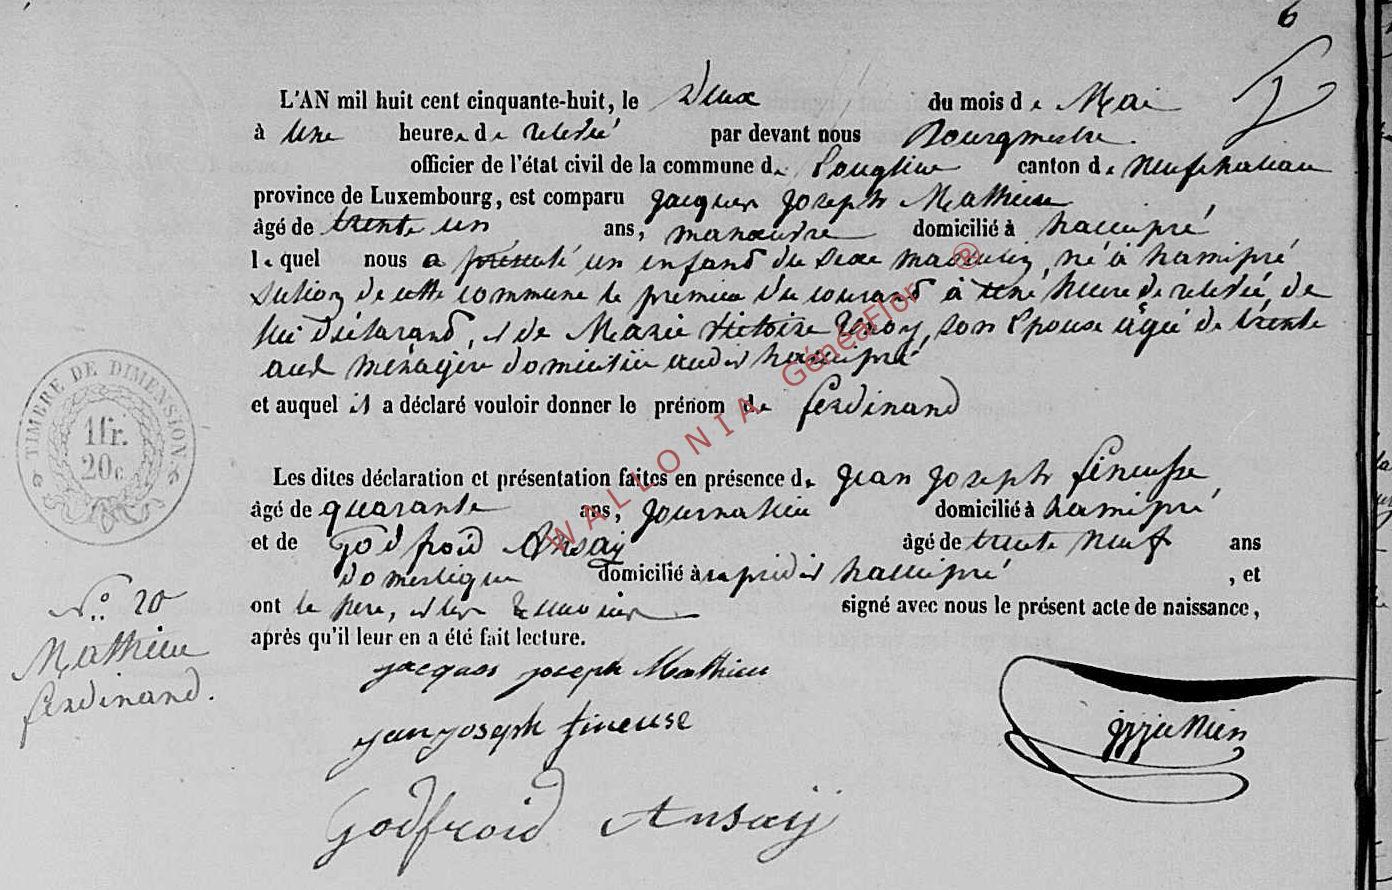 6
L'AN mil huit cent cinquante-huit, le Deux du mois de Mai
à une heure de relevée par devant nous Bourgmestre
officier de l'état civil de la commune de Longlier canton de Neufchateau
province de Luxembourg, est comparu Jacques Joseph Mathieu
âgé de trente un ans, manœuvre domicilié à hamipré
lequel nous a présenté un enfant du sexe masculin, né à hamipré
Section de cette commune le premier du courant à une heure de relevée, de
lui déclarant, et de Marie Victoire son Epouse agée de trente
ans ménagère domiciliée audit hamipré
et auquel il a déclaré vouloir donner le prénom de ferdinand
Les dites déclaration et présentation faites en présence de Jean Joseph fineuse
âgé de quarante ans, Journalier domicilié à hamipré
et de Godfroid Ansay âgé de trente neuf ans
domestique domicilié à hamipré , et
ont le père, et les témoins signé avec nous le présent acte de naissance,
après qu'il leur en a été fait lecture.
jacques joseph Mathieu
jean joseph fineuse
Godfroid Ansaÿ
N° 20
Mathieu
ferdinand.
TIMBRE DE DIMENSION
1fr.
20c
WALLONIA GénéaFlor ®